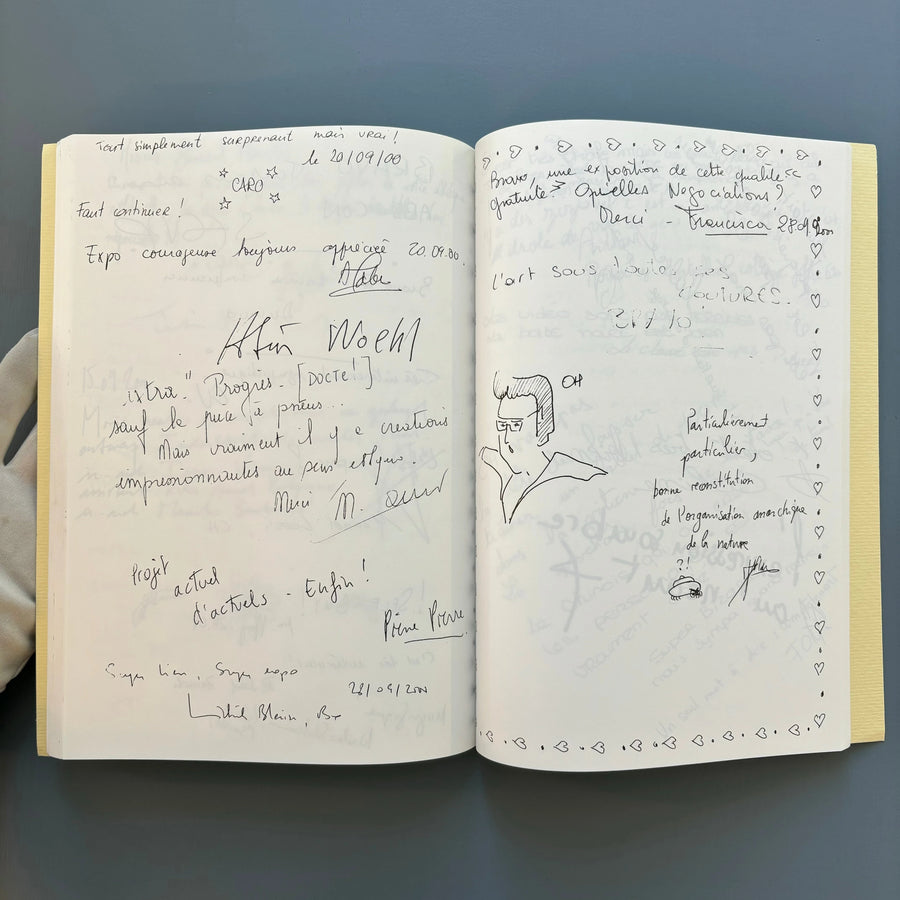 Tout simplement surprenant mais vrai !
le 20/09/00
CARO
Faut continuer !
Expo courageuse toujours appréciée 20.09.00.
Woehl
"extra" Progrès. [DOCTE!]
sauf la pièce à pneus...
Mais vraiment il y a creations
impressionnantes au sens
Merci M.
Projet
actuel
d'actuels - Enfin !
Pierre Pierre
Super lieu, Super expo
28/09/2000
Blévin, Bx
Bravo, une exposition de cette qualité <<
gratuite >> Quelles Négociations ?
Merci - Francisca 28.09.2000
L'art sous toutes ses
COUTURES.
BRAVO
OH
Particulièrement
particulier,
bonne reconstitution
de l'organisation anarchique
de la nature
?!